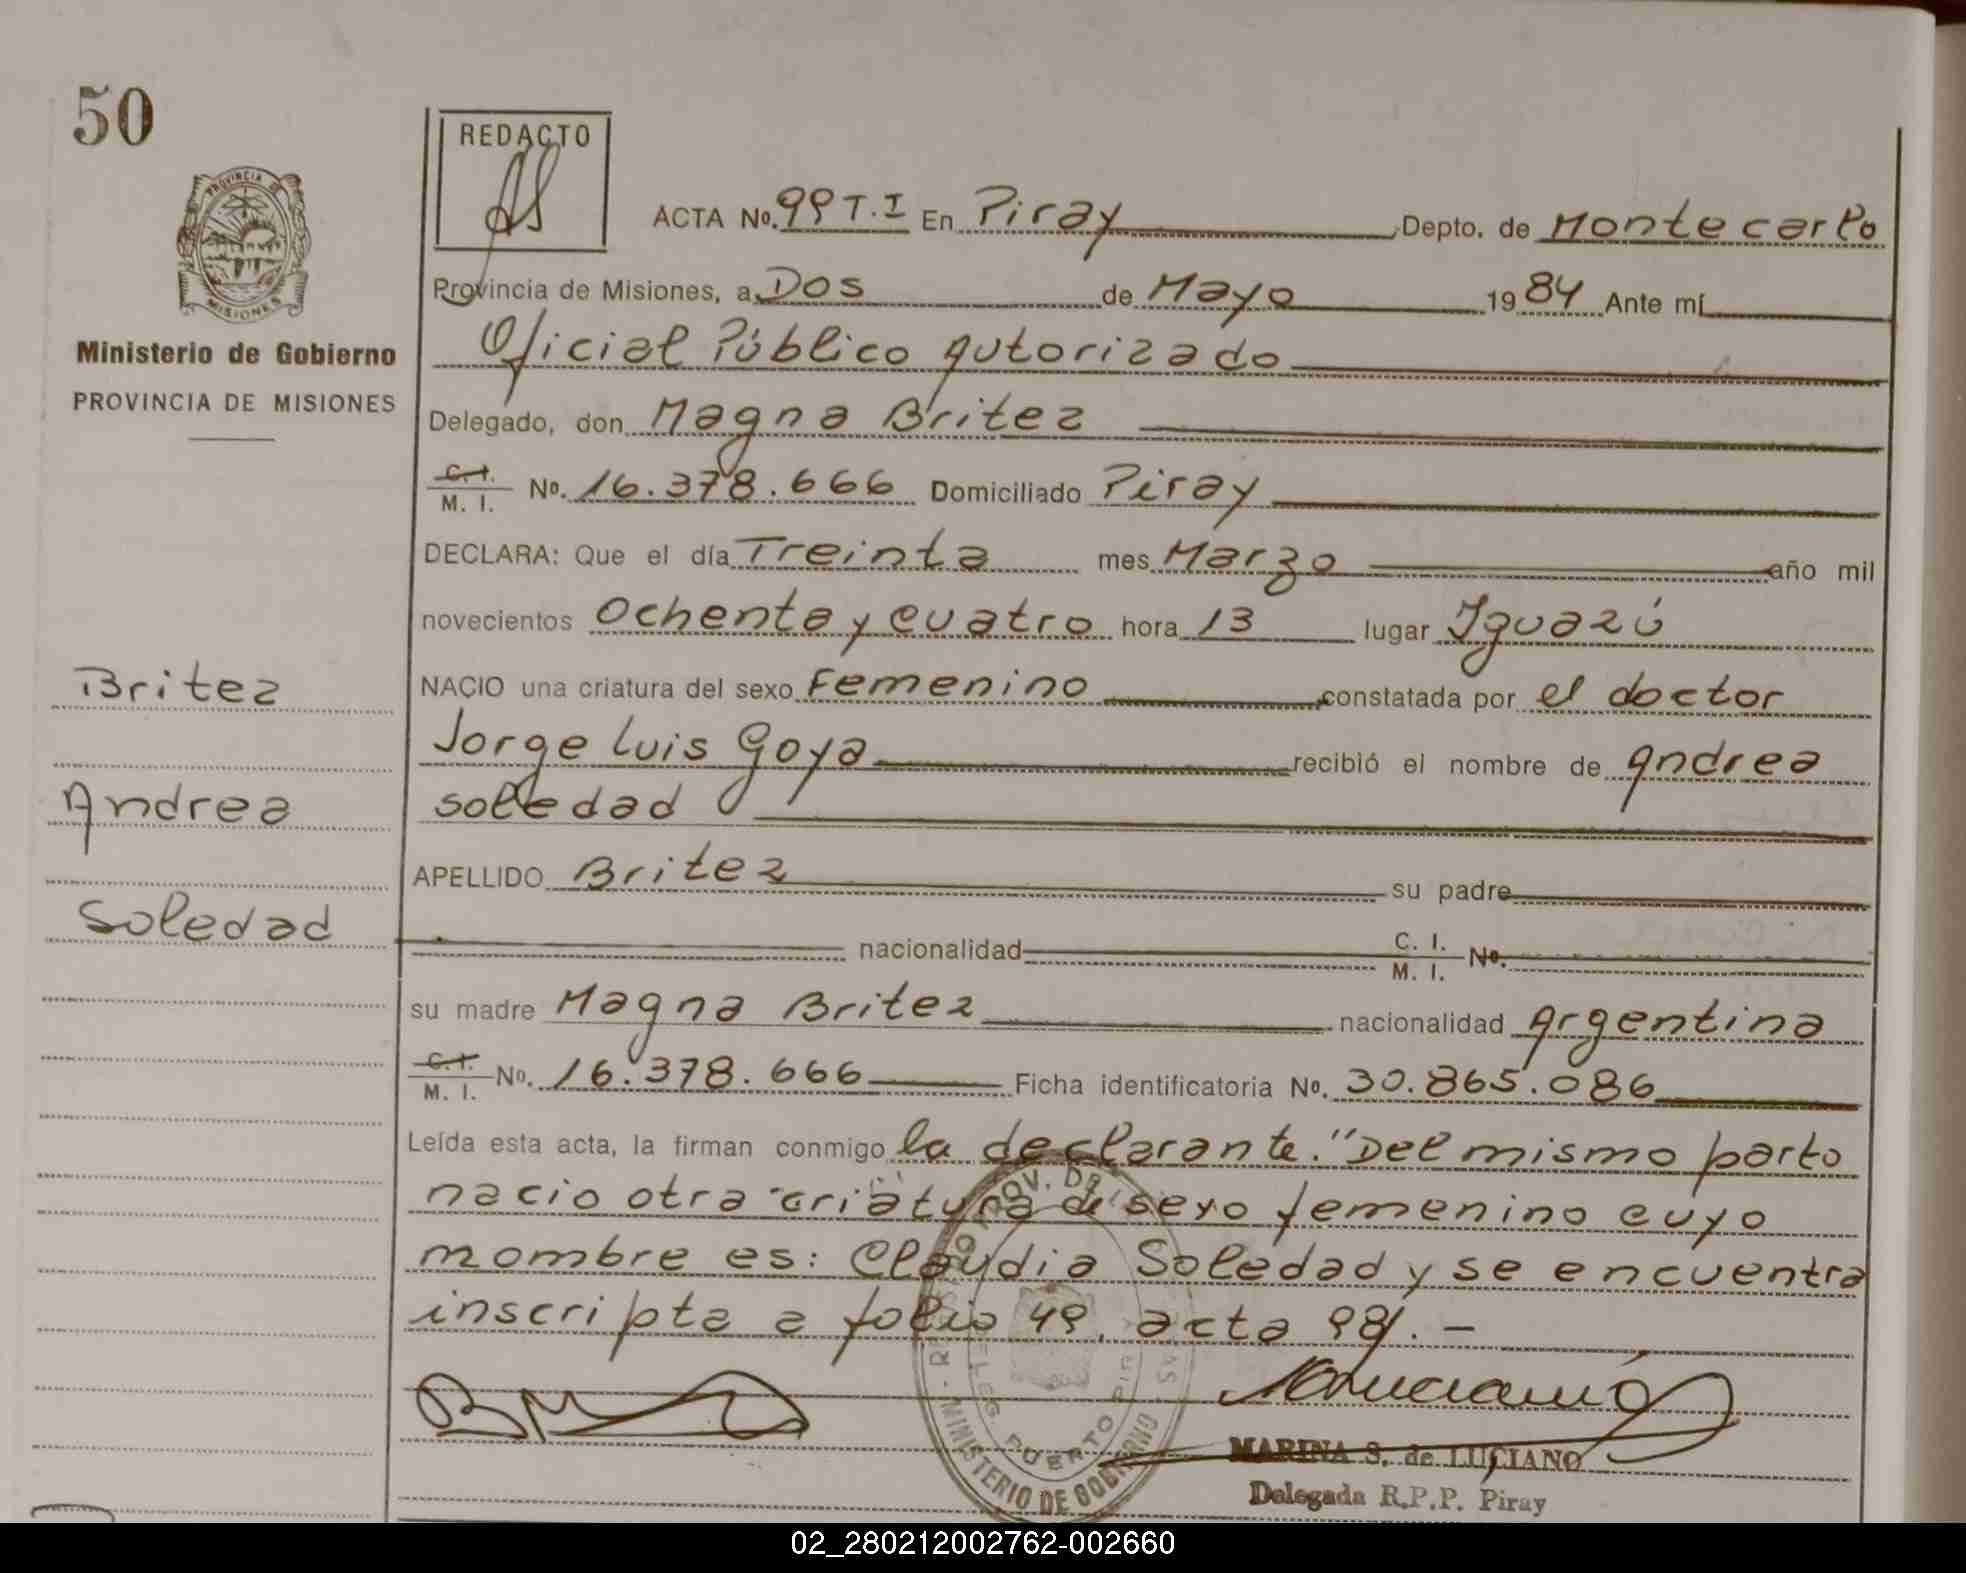 50
REDACTO
PROVINCIA DE
MISIONES
ACTA No. 99 T.I En Piray Depto. de Montecarlo
Provincia de Misiones, a Dos de Mayo 1984 Ante mí
Oficial Público autorizado
Ministerio de Gobierno
PROVINCIA DE MISIONES
Delegado, don Magna Britez
C. I. / M. I. No. 16.378.666 Domiciliado Piray
DECLARA: Que el día Treinta mes Marzo año mil
novecientos Ochenta y cuatro hora 13 lugar Iguazú
Britez
NACIO una criatura del sexo Femenino constatada por el doctor
Jorge Luis Goya recibió el nombre de Andrea
Andrea
Soledad
APELLIDO Britez su padre
Soledad
nacionalidad C. I. / M. I. No.
su madre Magna Britez nacionalidad Argentina
C. I. / M. I. No. 16.378.666 Ficha identificatoria No. 30.865.086
Leída esta acta, la firman conmigo la declarante. "Del mismo parto
nacio otra criatura de sexo femenino cuyo
nombre es: Claudia Soledad y se encuentra
inscripta a folio 49, acta 98/. -
MINISTERIO DE GOBIERNO
PUERTO PIRAY
MARINA S. de LUCIANO
Delegada R.P.P. Piray
02_280212002762-002660